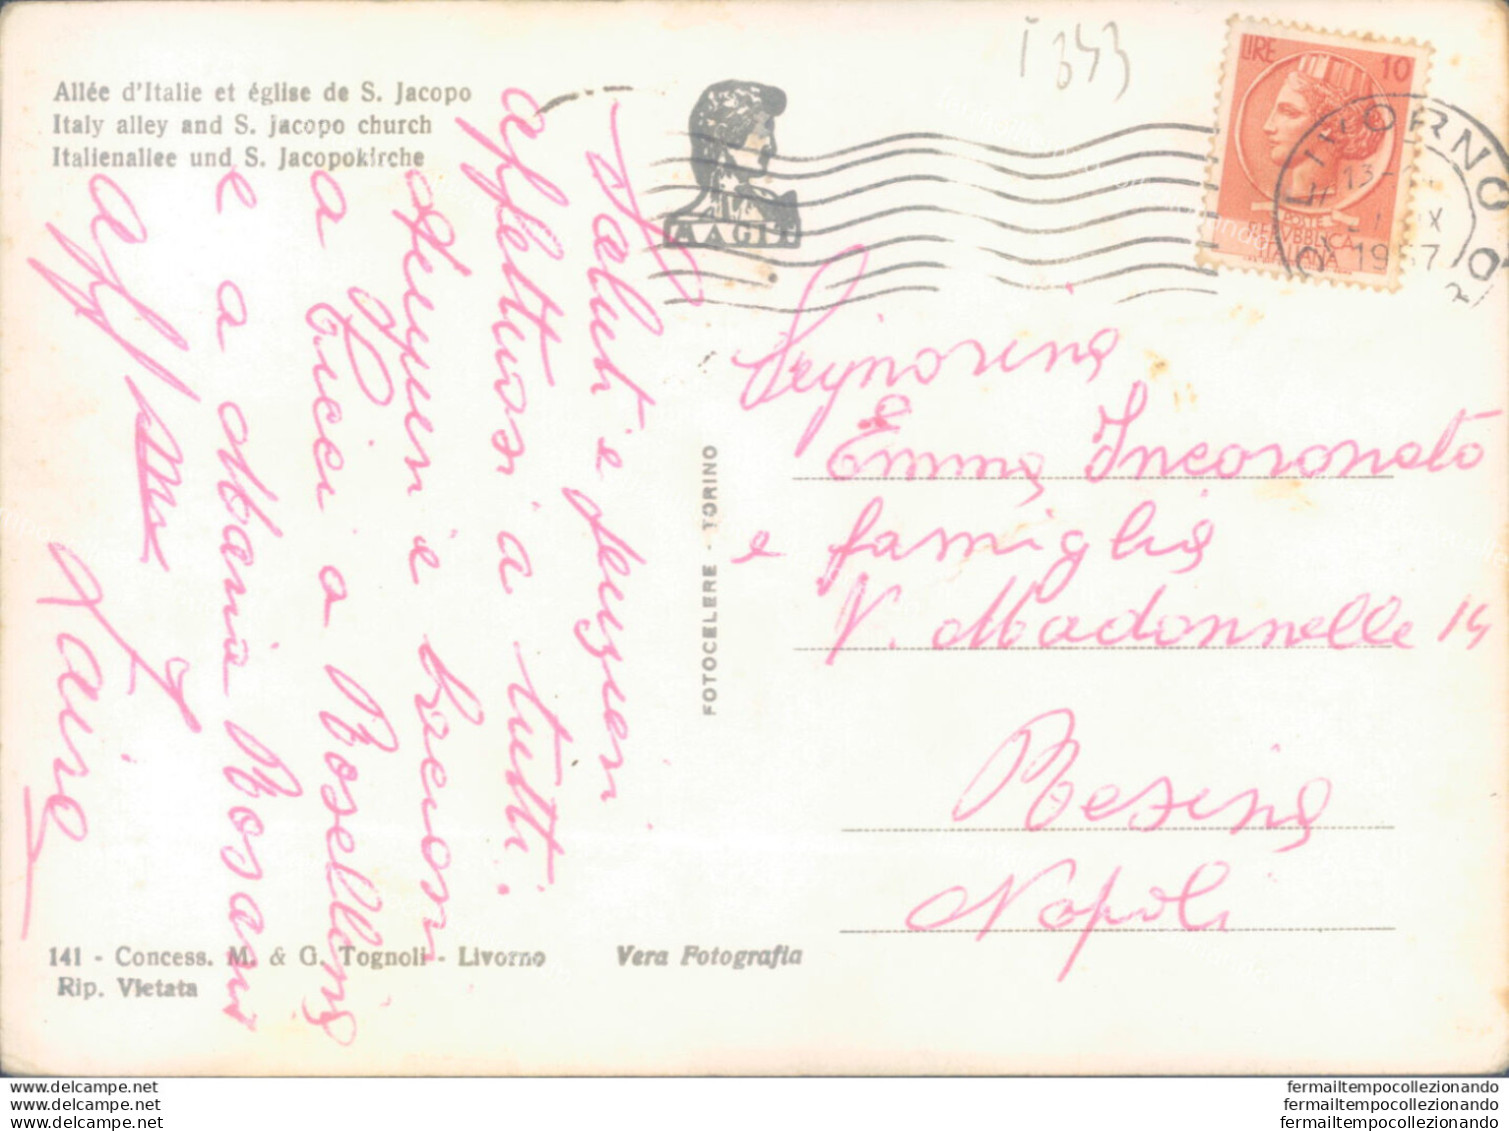 Allée d'Italie et église de S. Jacopo
Italy alley and S. Jacopo church
Italienallee und S. Jacopokirche
I 343
LIRE 10
POSTE
REPVBBLICA
ITALIANA
LIVORNO
13-
IX
1957
MAGI
Saluti e
affettuosi a tutti.
Auguri e bacioni
a Pici a Rosellina
e a Maria Rosaria
aff
Signorina
Emma Incoronato
e famiglia
V. Madonnelle 14
Resina
Napoli
FOTOCELERE - TORINO
141 - Concess. M. & G. Tognoli - Livorno
Vera Fotografia
Rip. Vietata
www.delcampe.net
www.delcampe.net
www.delcampe.net
fermailtempocollezionando
fermailtempocollezionando
fermailtempocollezionando